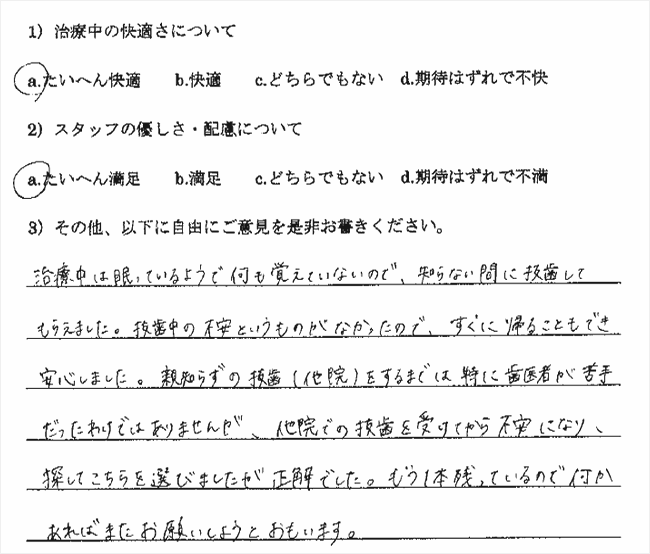 1) 治療中の快適さについて
a.たいへん快適 b.快適 c.どちらでもない d.期待はずれで不快
2) スタッフの優しさ・配慮について
a.たいへん満足 b.満足 c.どちらでもない d.期待はずれで不満
3) その他、以下に自由にご意見を是非お書きください。
治療中は眠っているようで何も覚えていないので、知らない間に抜歯して
もらえました。抜歯中の不安というものがなかったので、すぐに帰ることもでき
安心しました。親知らずの抜歯(他院)をするまでは特に歯医者が苦手
だったわけではありませんが、他院での抜歯を受けてから不安になり、
探してこちらを選びましたが正解でした。もう1本残っているので何か
あればまたお願いしようとおもいます。